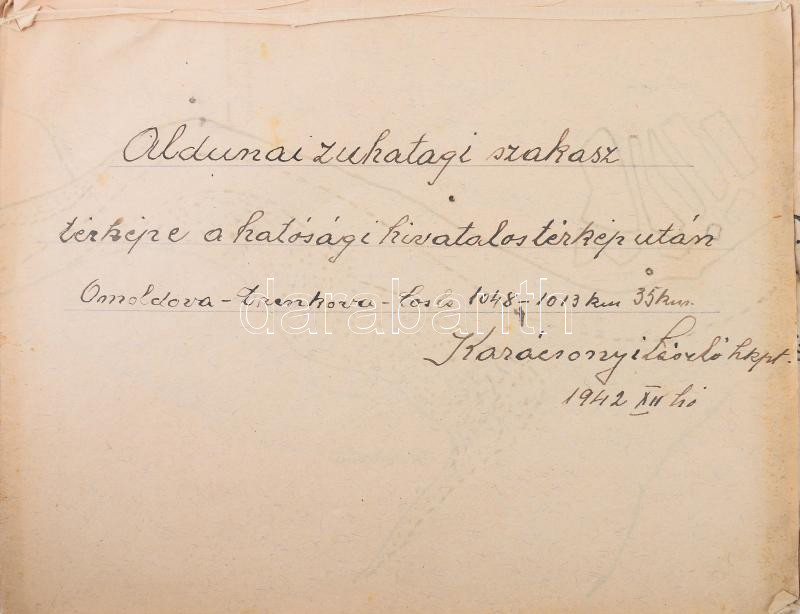 Aldunai zuhatagi szakasz
térképe a hatósági hivatalos térkép után
Omoldova - Trenkova - 1048 - 1013 km 35 km.
Karácsonyi László hkpt.
1942 XII hó
darabanth